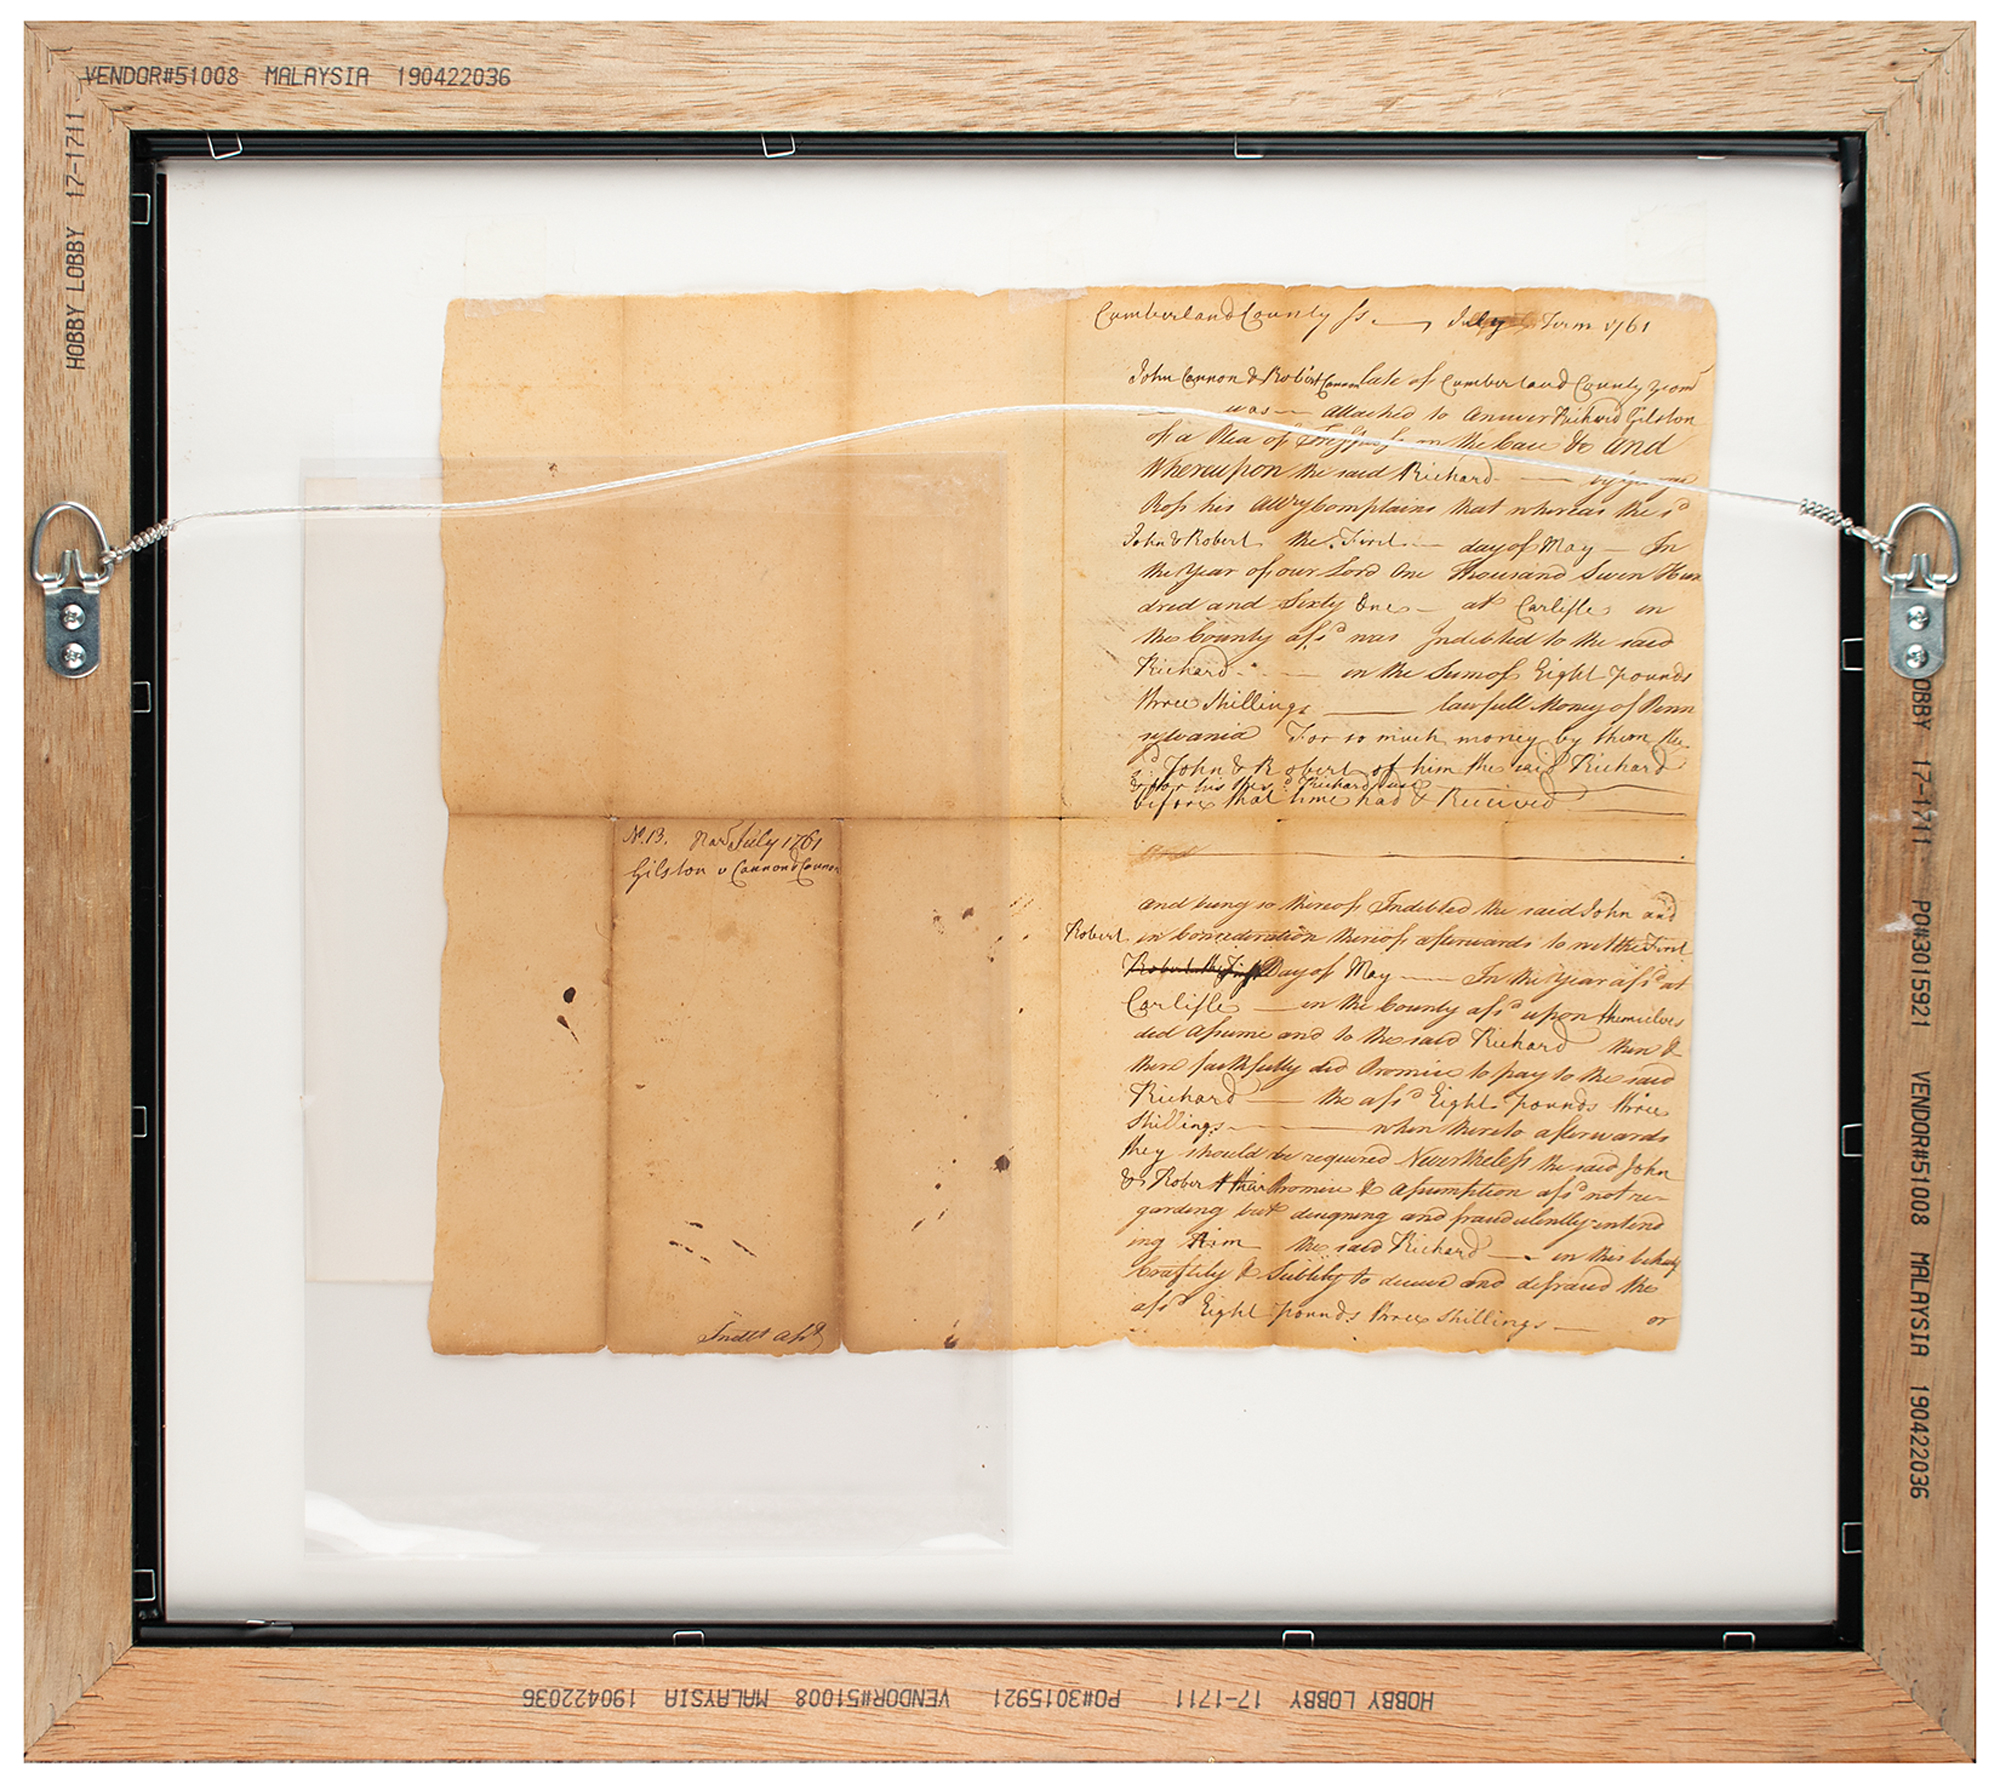 VENDOR#51008 MALAYSIA 190422036
HOBBY LOBBY 17-1711
Cumberland County ss. July Term 1761
John Cannon & Robert Cannon late of Cumberland County yeom
was attached to answer Richard Gilston
of a Plea of Trespass on the Case &c and
Whereupon the said Richard by George
Ross his Atty Complains that whereas the sd
John & Robert the First day of May In
the Year of our Lord One Thousand Seven Hun
dred and Sixty One at Carlisle in
the County afsd was Indebted to the said
Richard in the Sum of Eight pounds
three shillings lawfull Money of Penn
sylvania For so much money by them the
sd John & Robert of him the said Richard
& for his the sd Richard
before that time had & Received
and
and being so thereof Indebted the said John and
Robert in Consideration thereof afterwards to wit the First
Robert the First Day of May In the Year afsd at
Carlisle in the County afsd upon themselves
did Assume and to the said Richard then &
there faithfully did Promise to pay to the said
Richard the afsd Eight pounds three
shillings when thereto afterwards
they should be required Nevertheless the said John
& Robert their Promise & Assumption afsd not re-
garding but designing and fraudulently intend
ing him the said Richard in this behalf
Craftily & Subtily to deceive and defraud the
afsd Eight pounds three shillings or
No. 13. Nar July 1761
Gilston v Cannon & Cannon
Indtt Asst
LOBBY 17-1711 PO#3015921 VENDOR#51008 MALAYSIA 190422036
HOBBY LOBBY 17-1711 PO#3015921 VENDOR#51008 MALAYSIA 190422036